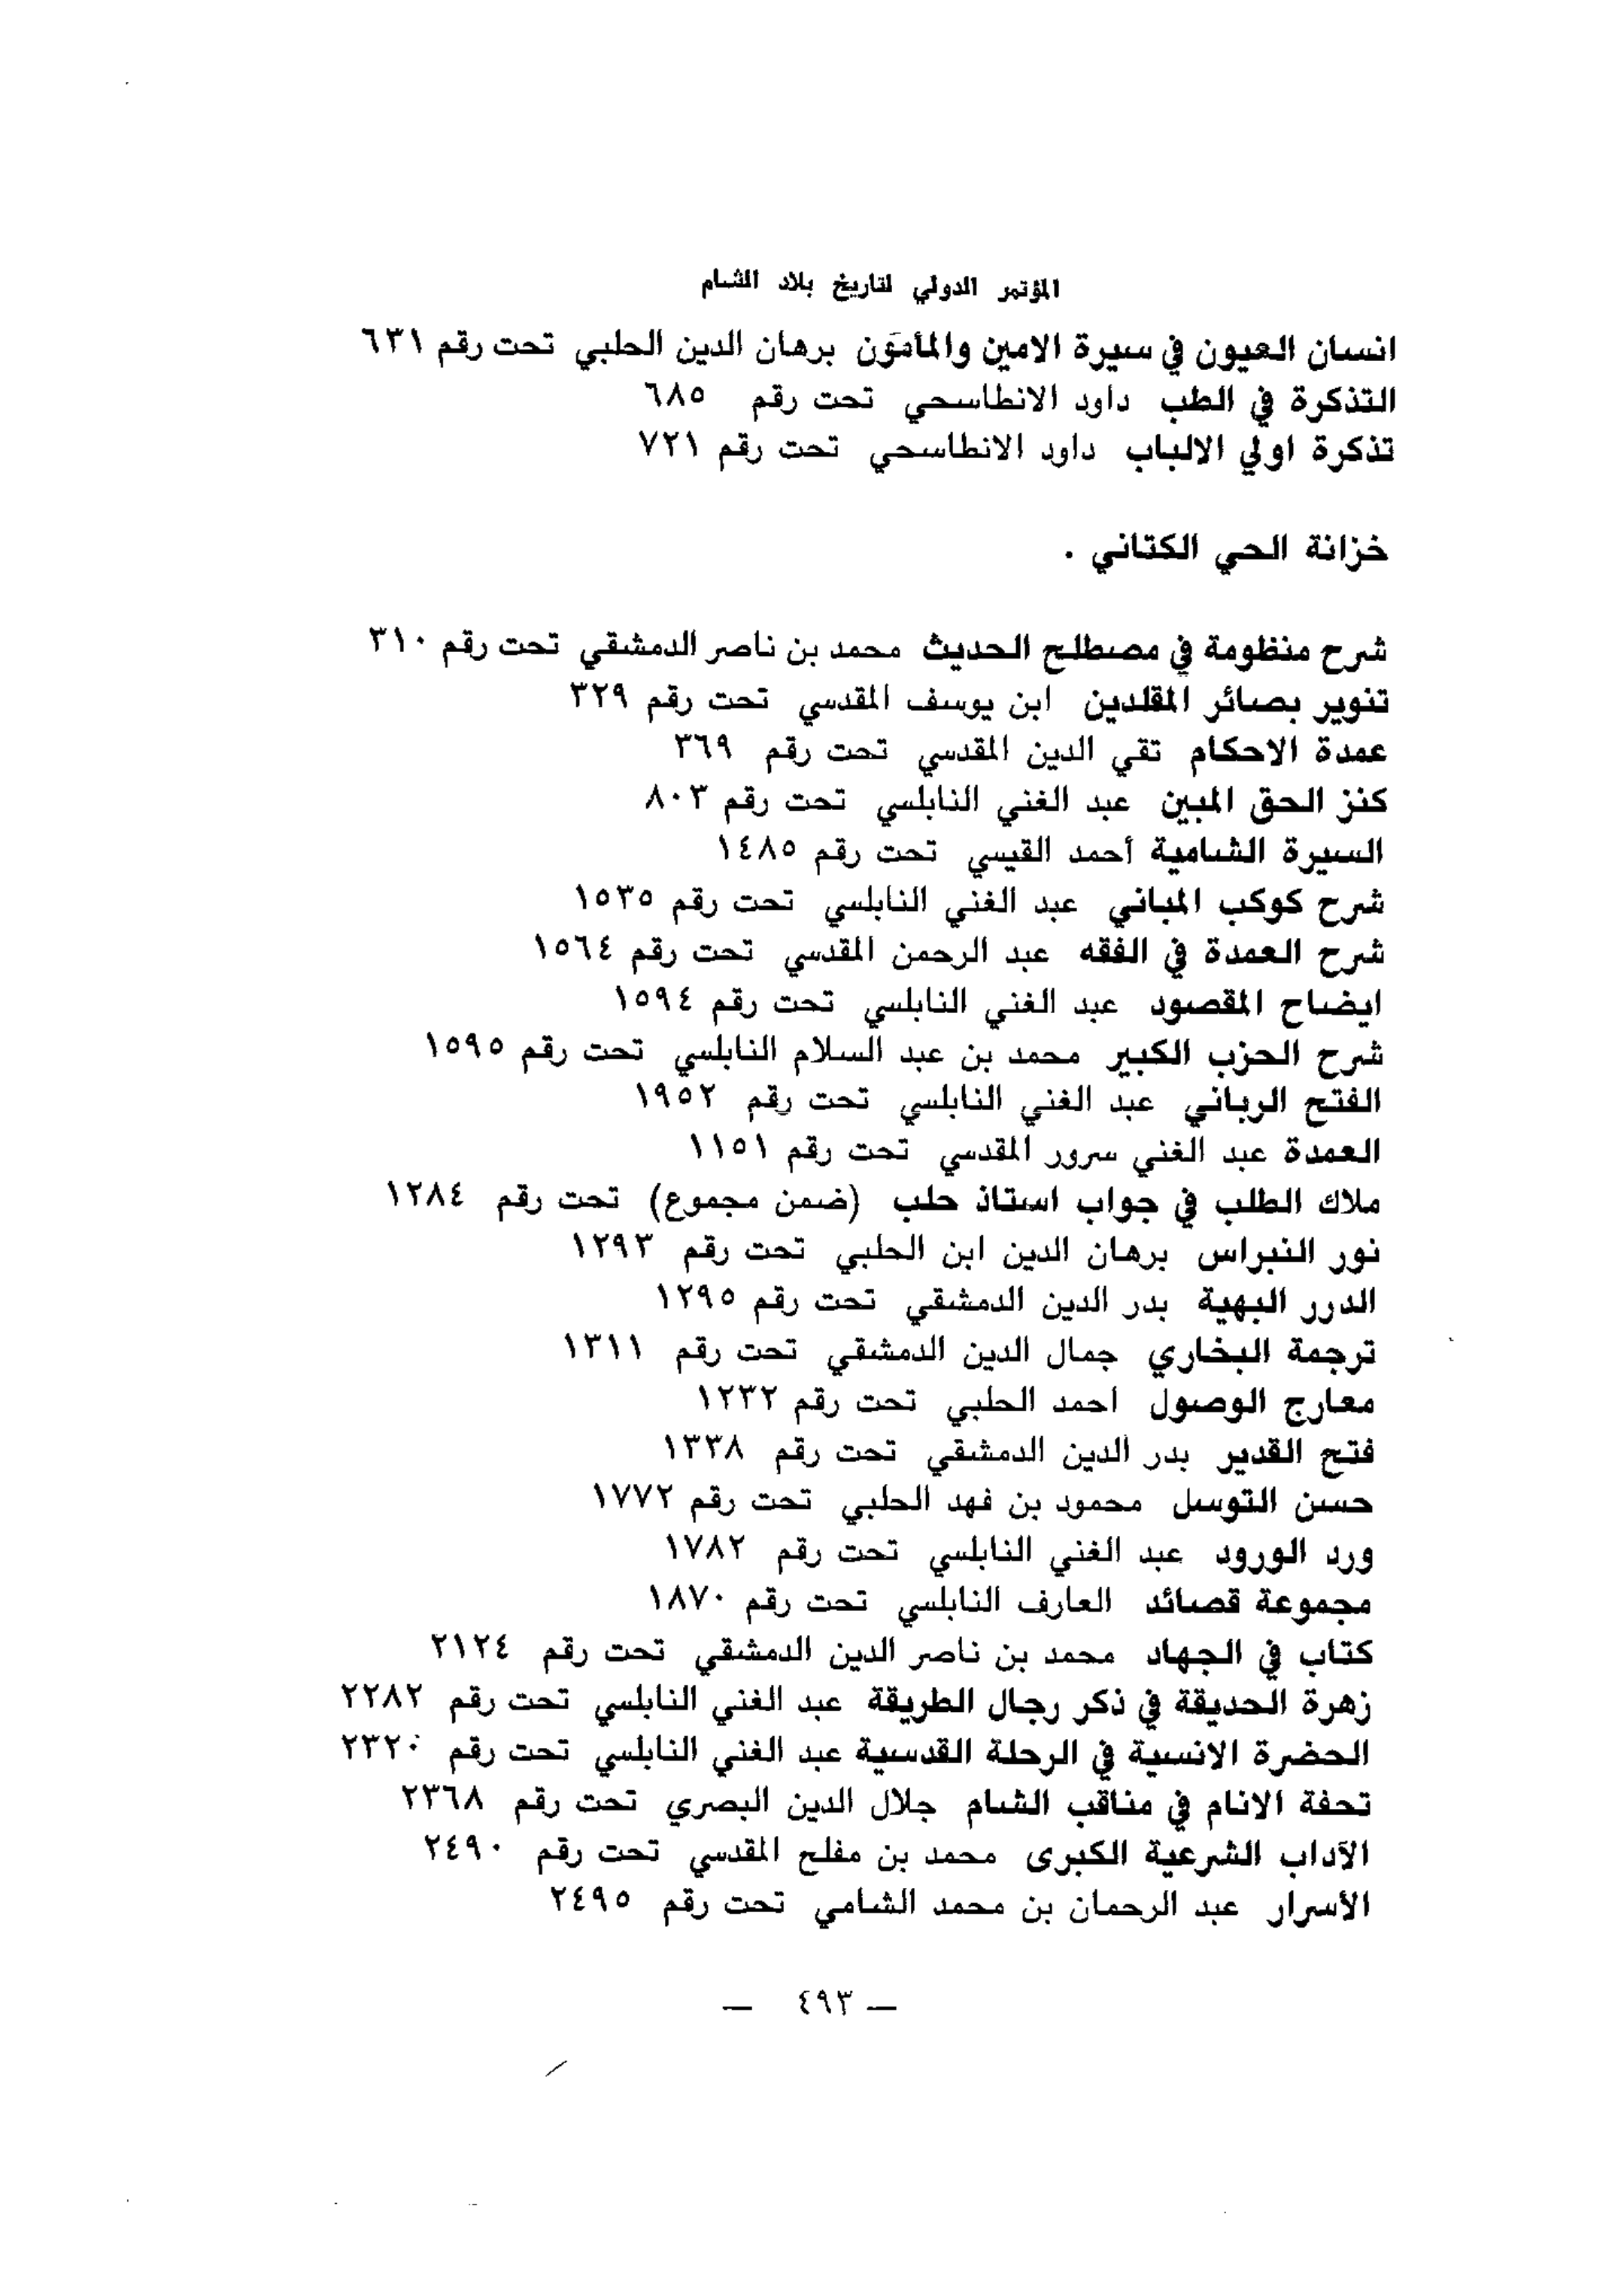 المؤتمر الدولي لتاريخ بلاد الشام
انسان العيون في سيرة الامين والمأمون برهان الدين الحلبي تحت رقم ٦٣١
التذكرة في الطب داود الانطاسحي تحت رقم ٦٨٥
تذكرة اولي الالباب داود الانطاسحي تحت رقم ٧٢١
خزانة الحي الكتاني .
شرح منظومة في مصطلح الحديث محمد بن ناصر الدمشقي تحت رقم ٣١٠
تنوير بصائر المقلدين ابن يوسف المقدسي تحت رقم ٣٢٩
عمدة الاحكام تقي الدين المقدسي تحت رقم ٣٦٩
كنز الحق المبين عبد الغني النابلسي تحت رقم ٨٠٣
السيرة الشامية أحمد القيسي تحت رقم ١٤٨٥
شرح كوكب المباني عبد الغني النابلسي تحت رقم ١٥٣٥
شرح العمدة في الفقه عبد الرحمن المقدسي تحت رقم ١٥٦٤
ايضاح المقصود عبد الغني النابلسي تحت رقم ١٥٩٤
شرح الحزب الكبير محمد بن عبد السلام النابلسي تحت رقم ١٥٩٥
الفتح الرباني عبد الغني النابلسي تحت رقم ١٩٥٢
العمدة عبد الغني سرور المقدسي تحت رقم ١١٥١
ملاك الطلب في جواب استاذ حلب (ضمن مجموع) تحت رقم ١٢٨٤
نور النبراس برهان الدين ابن الحلبي تحت رقم ١٢٩٣
الدرر البهية بدر الدين الدمشقي تحت رقم ١٢٩٥
ترجمة البخاري جمال الدين الدمشقي تحت رقم ١٣١١
معارج الوصول احمد الحلبي تحت رقم ١٢٣٢
فتح القدير بدر الدين الدمشقي تحت رقم ١٣٣٨
حسن التوسل محمود بن فهد الحلبي تحت رقم ١٧٧٢
ورد الورود عبد الغني النابلسي تحت رقم ١٧٨٢
مجموعة قصائد العارف النابلسي تحت رقم ١٨٧٠
كتاب في الجهاد محمد بن ناصر الدين الدمشقي تحت رقم ٢١٢٤
زهرة الحديقة في ذكر رجال الطريقة عبد الغني النابلسي تحت رقم ٢٢٨٢
الحضرة الانسية في الرحلة القدسية عبد الغني النابلسي تحت رقم ٢٣٢٠
تحفة الانام في مناقب الشام جلال الدين البصري تحت رقم ٢٣٦٨
الآداب الشرعية الكبرى محمد بن مفلح المقدسي تحت رقم ٢٤٩٠
الأسرار عبد الرحمان بن محمد الشامي تحت رقم ٢٤٩٥
— ٤٩٣ —